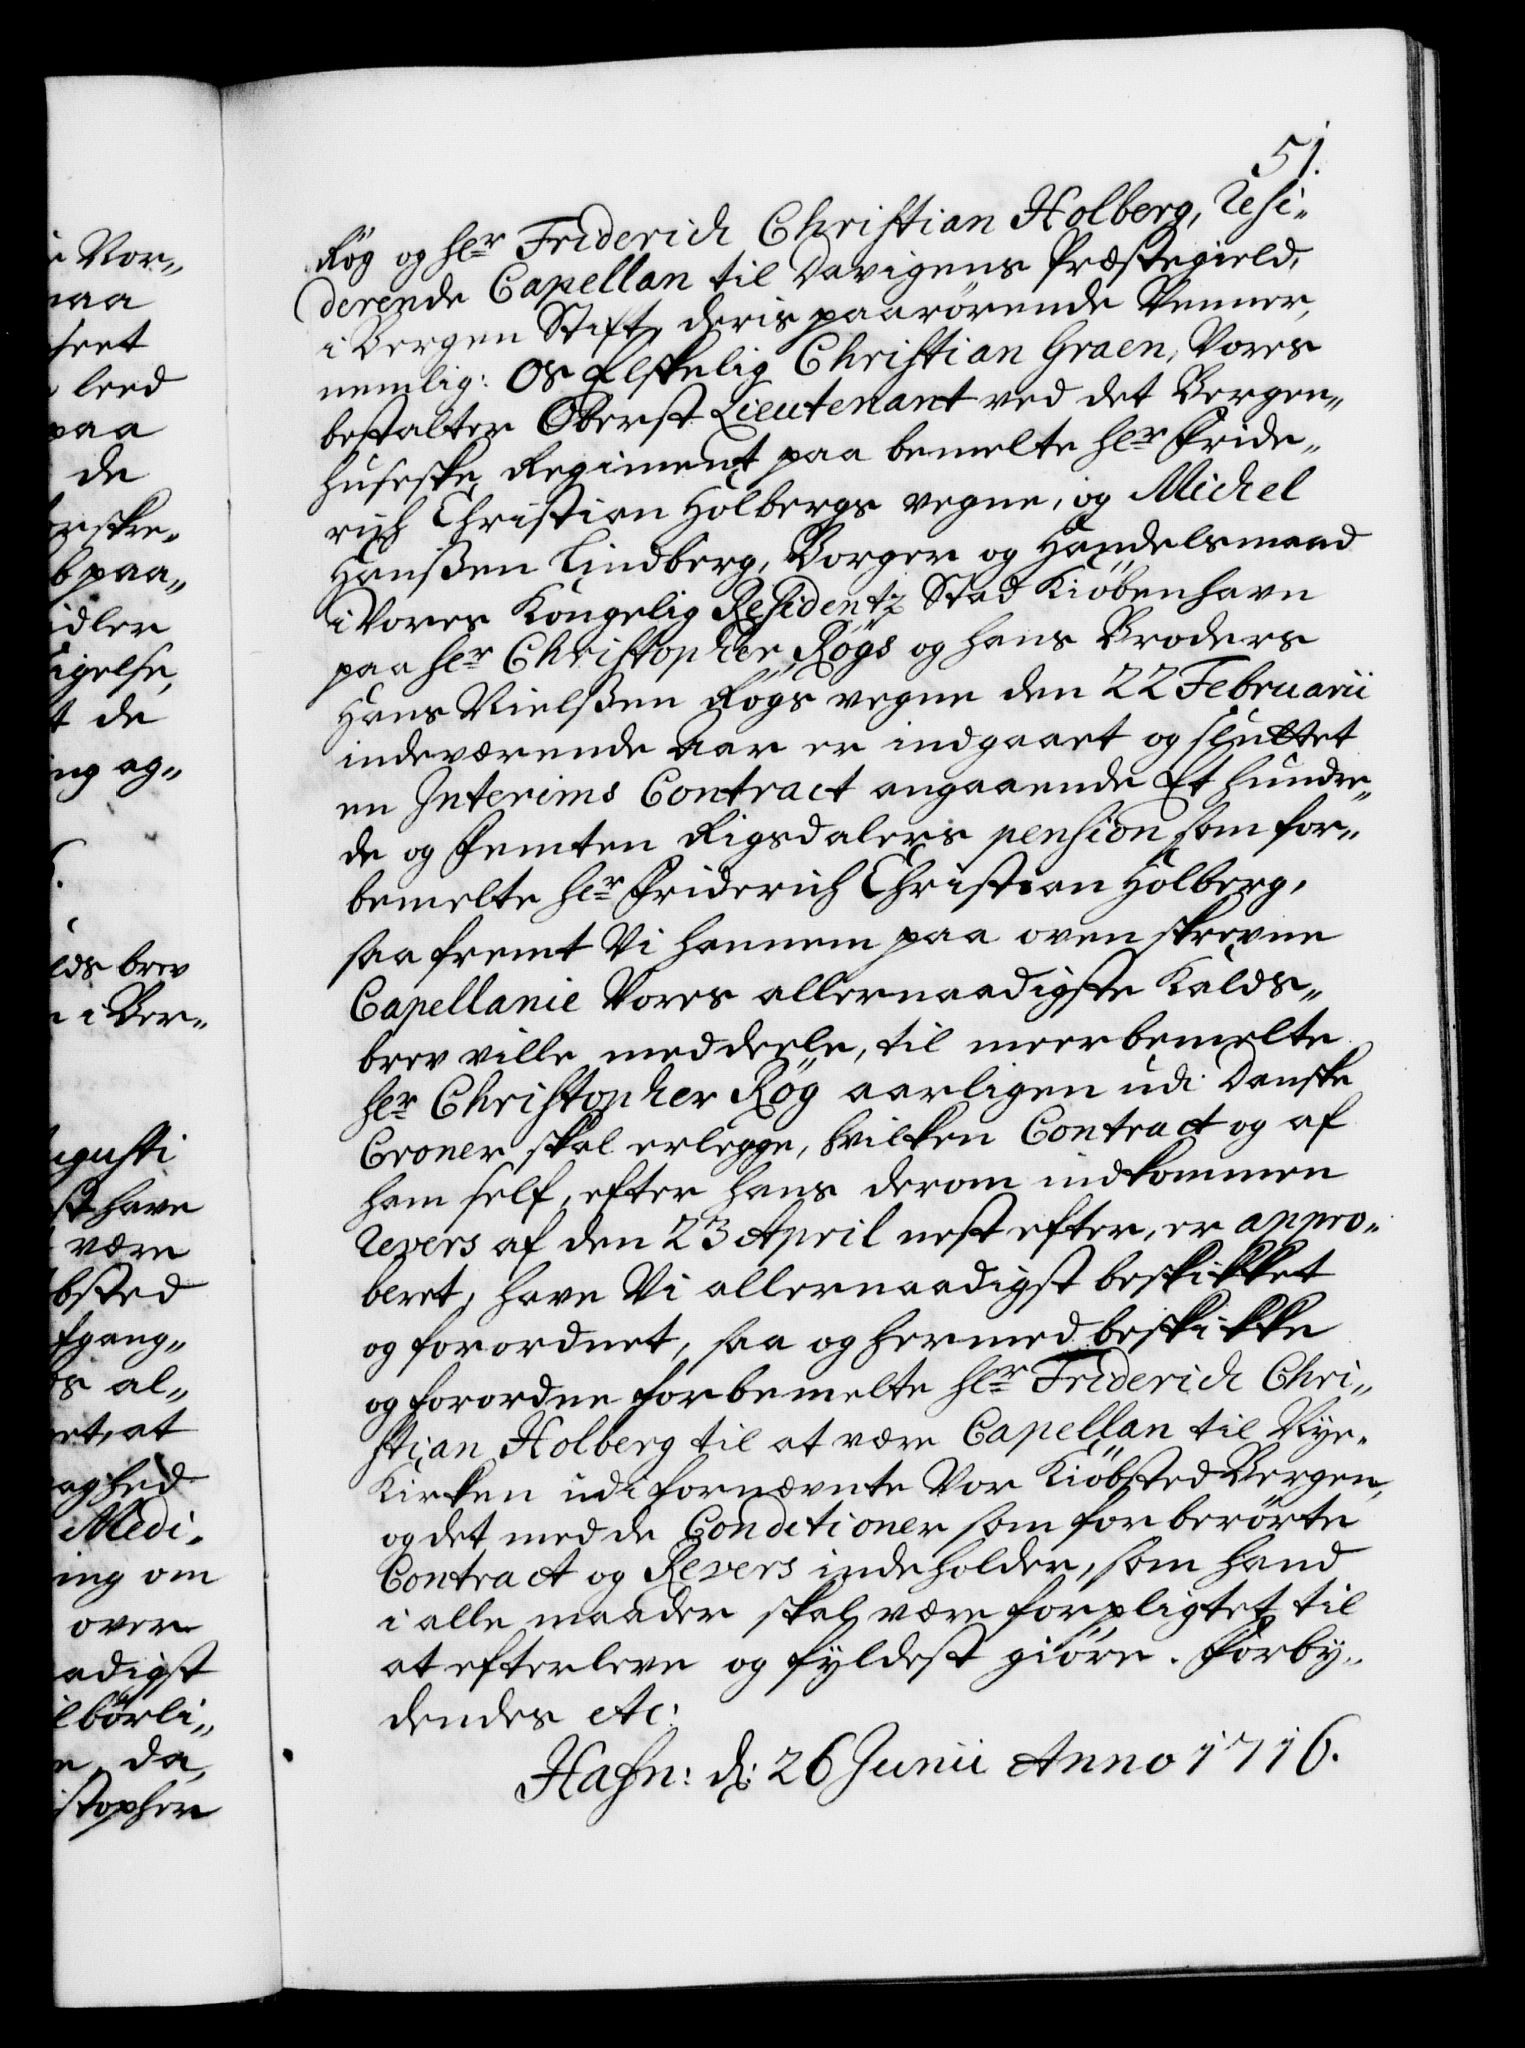 51.
Røg og hr Friderich Christian Holberg, Resi-
derende Capellan til Davigens Præstegield,
i Bergen Stift, deris paarörende Venner,
nemlig: Os Elskelig Christian Graen, Vores
bestalter Oberst Lieutenant ved det Bergen-
husiske Regiment paa bemelte hr Fride-
rich Christian Holbergs vegne, og Michel
Hanßen Lindberg, Borger og Handelsmand
i Vores Kongelig Residentz Stad Kiöbenhavn
paa hr Christopher Rögs og hans Broders
Hans Nielßen Rögs vegne den 22 Februarii
indeværende Aar er indgaaet og sluttet
en Interims Contract angaaende Et hundre-
de og Femten Rigsdalers pension som for-
bemelte hr Friderich Christian Holberg,
saa fremt Vi hannem paa ovenskrevne
Capellanie Vores allernaadigste Kalds-
brev ville meddeele, til meerbemelte
hr Christopher Røg aarligen udi Danske
Croner skal erlegge, hvilken Contract og af
ham self, efter hans derom indkommen
Revers af den 23 April nest efter, er appro-
beret; have Vi allernaadigst beskikket
og forordnet, saa og hermed beskikke
og forordne forbemelte hr Friderich Chri-
stian Holberg til at være Capellan til Nye-
Kirken udi fornævnte Vor Kiöbsted Bergen,
og det med de Conditioner som forberörte
Contract og Revers indeholder, som hand
i alle maader skal være forpligtet til
at efterleve og fyldest giöre. Forby-
dendes etc:
Hafn: d: 26 Junii Anno 1716.